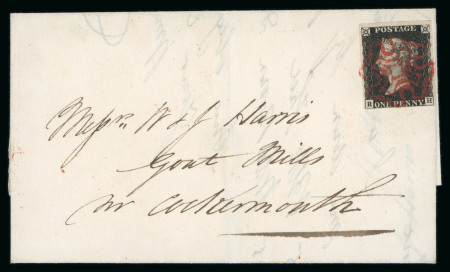 POSTAGE
R H
ONE PENNY
Messrs. W & J Harris
Goat Mills
nr Cockermouth